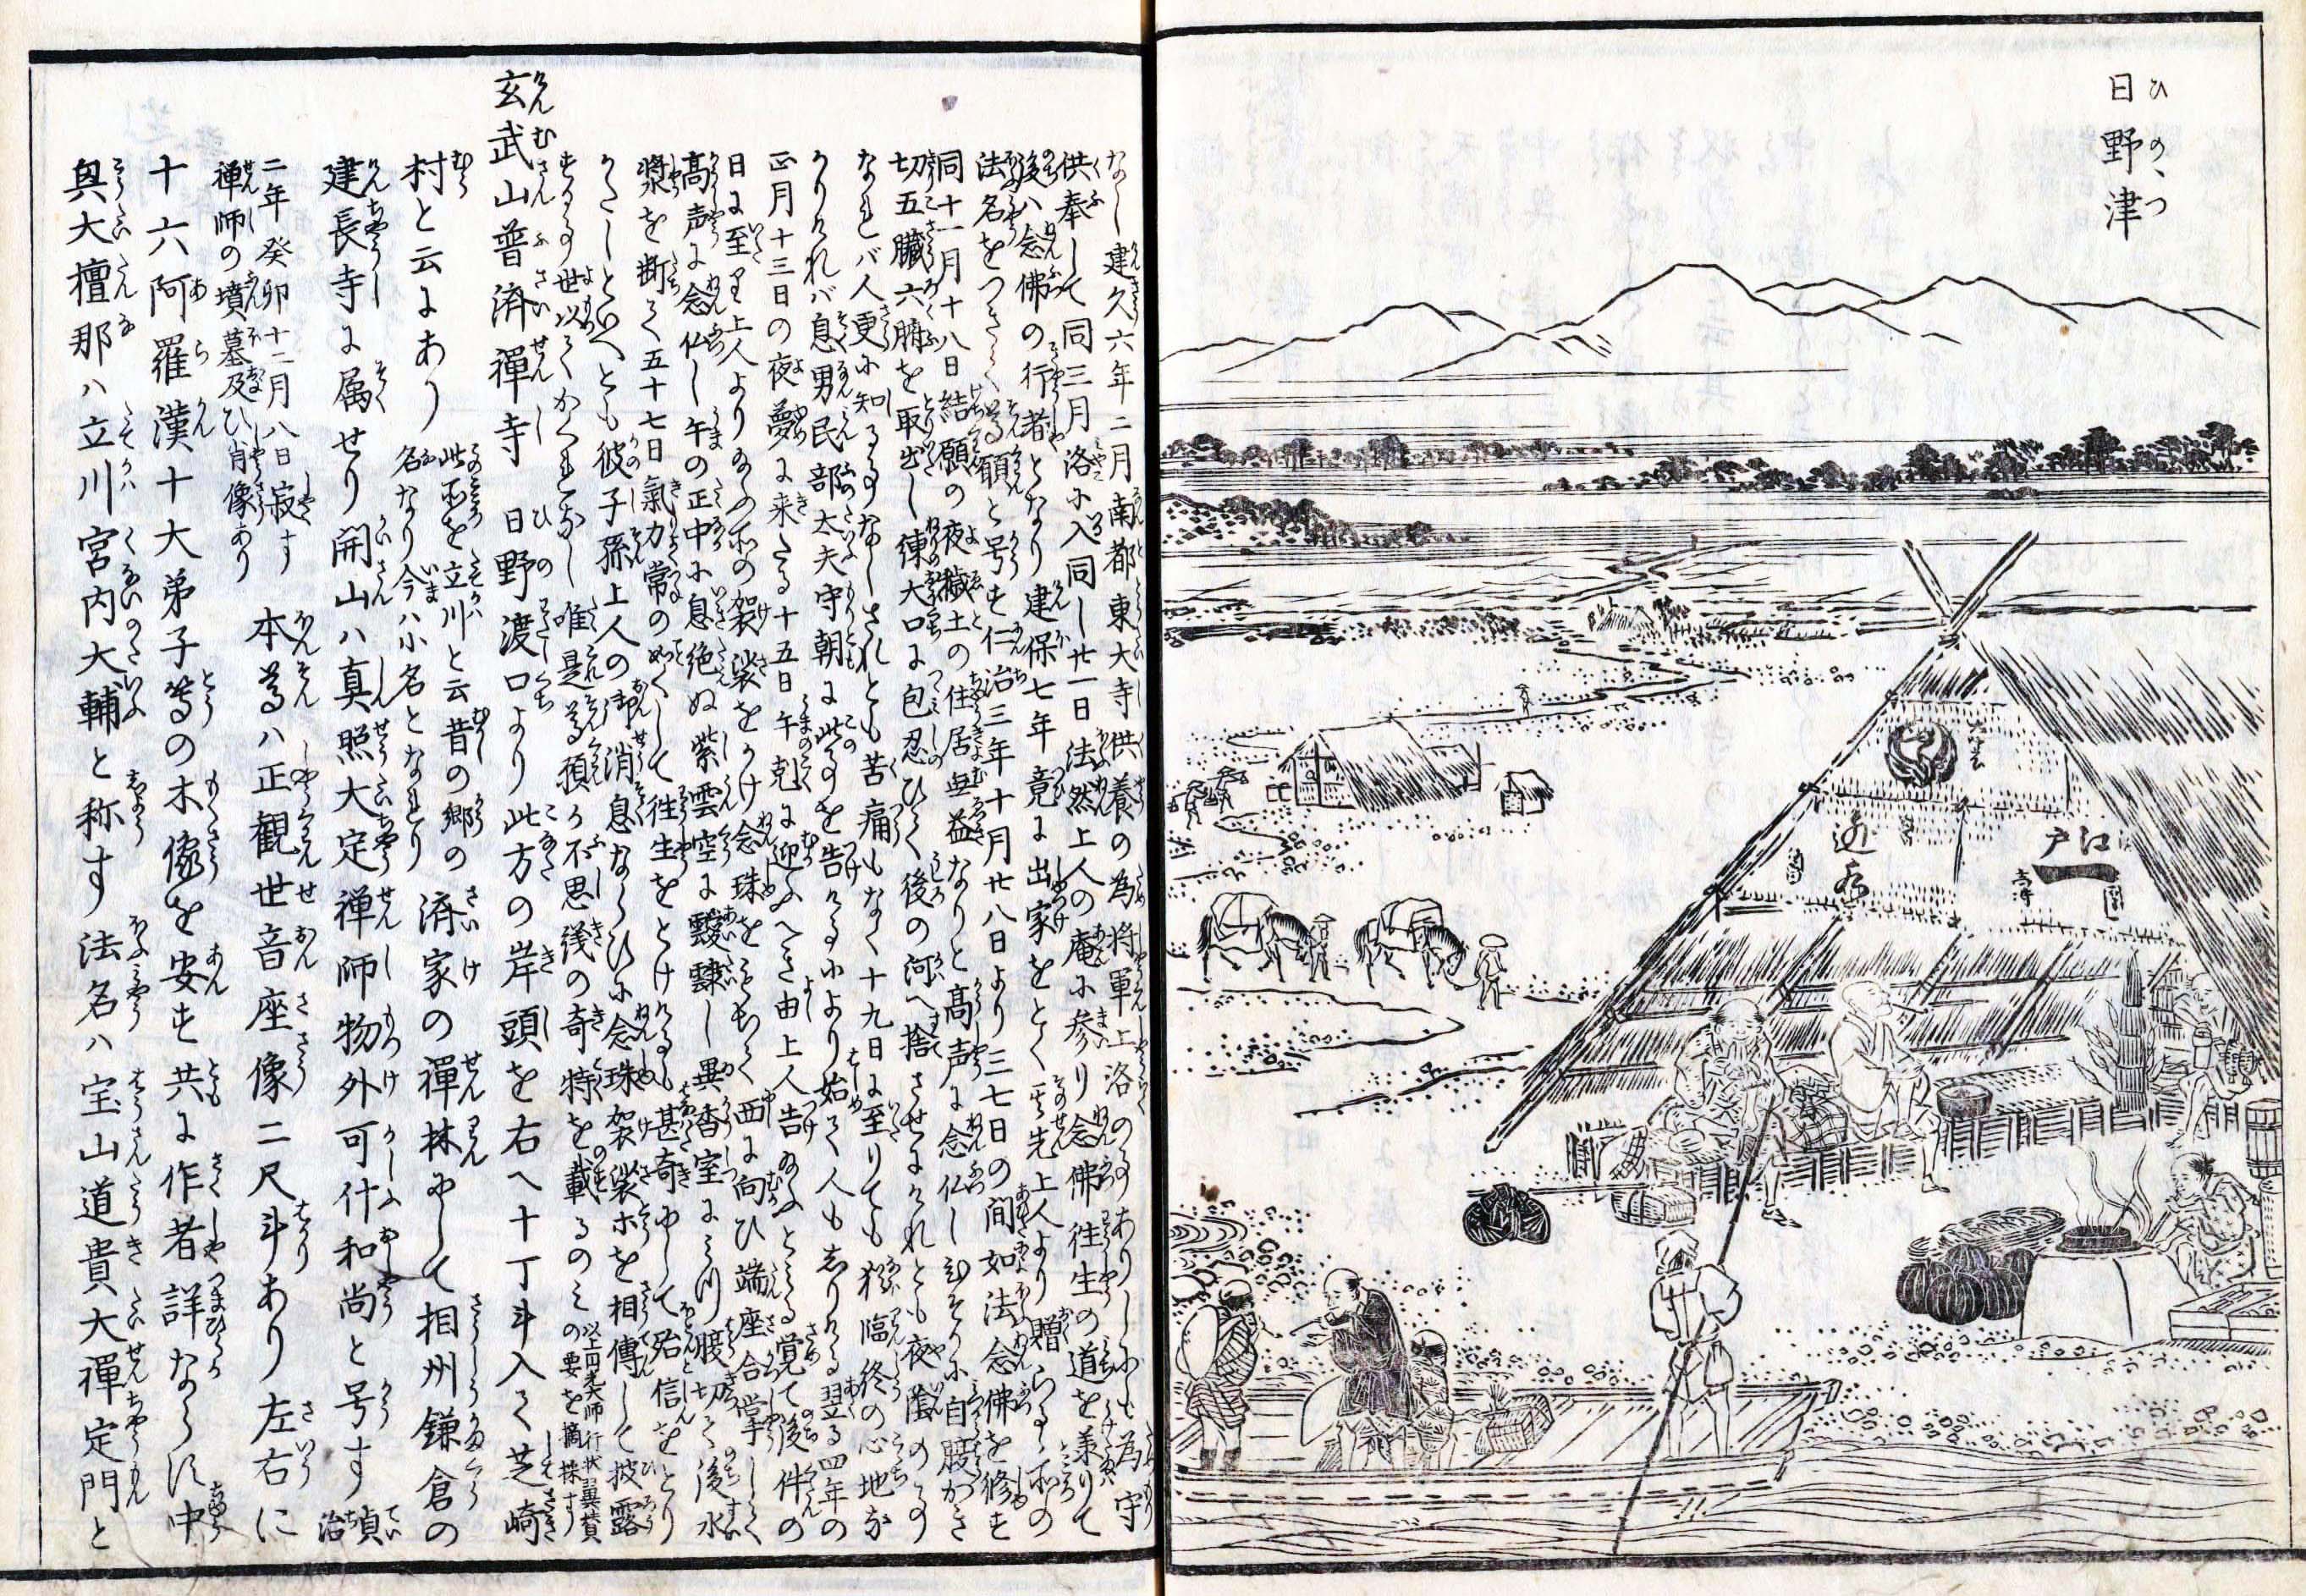 日野津
ひのゝつ
江戸
なし建久六年二月南都東大寺供養の為将軍上洛のことありしにも為守
供奉して同三月洛に入同し廿一日法然上人の庵に参り念佛往生の道を承りて
後ハ念佛の行者となり建保七年竟に出家をとく
法名をつきて尊願と号す仁治三年十月廿八日より三七日の間如法念佛を修す
同十一月十八日結願の夜穢土の住居無益なりと髙声に念仏しひそかに自腹かき
切五臓六腑を取出し練大口に包忍ひて後の河へ捨させけれとも夜陰のこと
なれバ人更に知ることなしされとも苦痛もなく十九日に至りても猶臨終の心地な
かりけれバ息男民部太夫守朝に此ことを告けるにより始て人もしりける翌る四年の
正月十三日の夜夢に来たる十五日午尅に迎ふへき由上人告給ふとみる覚て後件の
日に至り上人より給ふ所の袈裟をかけ念珠をもちて西に向ひ端座合掌して
髙声に念仏し午の正中に息絶ぬ紫雲空に靉靆し異香室にみつ腹切て後水
漿を断て五十七日氣力常の如くして往生をとけけるも甚奇にして殆信をとり
かたしといへとも彼子孫上人の御消息ならひに念珠袈裟ホを相傳して披露
することは世以てかくれなし唯是尊願か不思議の奇特を載るのみ
以上円光大師行状翼賛の要を摘採す
玄武山普済禅寺 日野渡口より此方の岸頭を右へ十丁斗入て芝崎
村と云にあり
此所を立川と云昔の郷の
名なり今ハ小名となれり
済家の禅林にして相州鎌倉の
建長寺に属せり開山ハ真照大定禅師物外可什和尚と号す
貞治
二年癸卯十二月八日寂す
禅師の墳墓及ひ肖像あり
本尊ハ正観世音座像二尺斗あり左右に
十六阿羅漢十大弟子等の木像を安す共に作者詳ならす中
興大檀那ハ立川宮内大輔と称す法名ハ宝山道貴大禅定門と